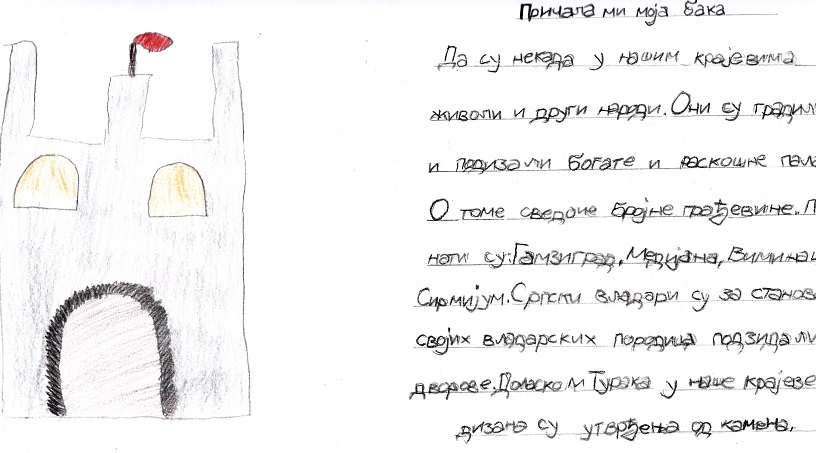 Причала ми моја бака
Да су некада у нашим крајевима
живоли и други народи. Они су градил
и подизали богате и раскошне пала
О томе сведоче бројне грађевине. П
нати су: Гамзиград, Медијана, Виминац
Сирмијум. Српски владари су за станов
својих владарских породица подзидали
дворове. Доласком Турака у наше крајеве
дизана су утврђења од камена.